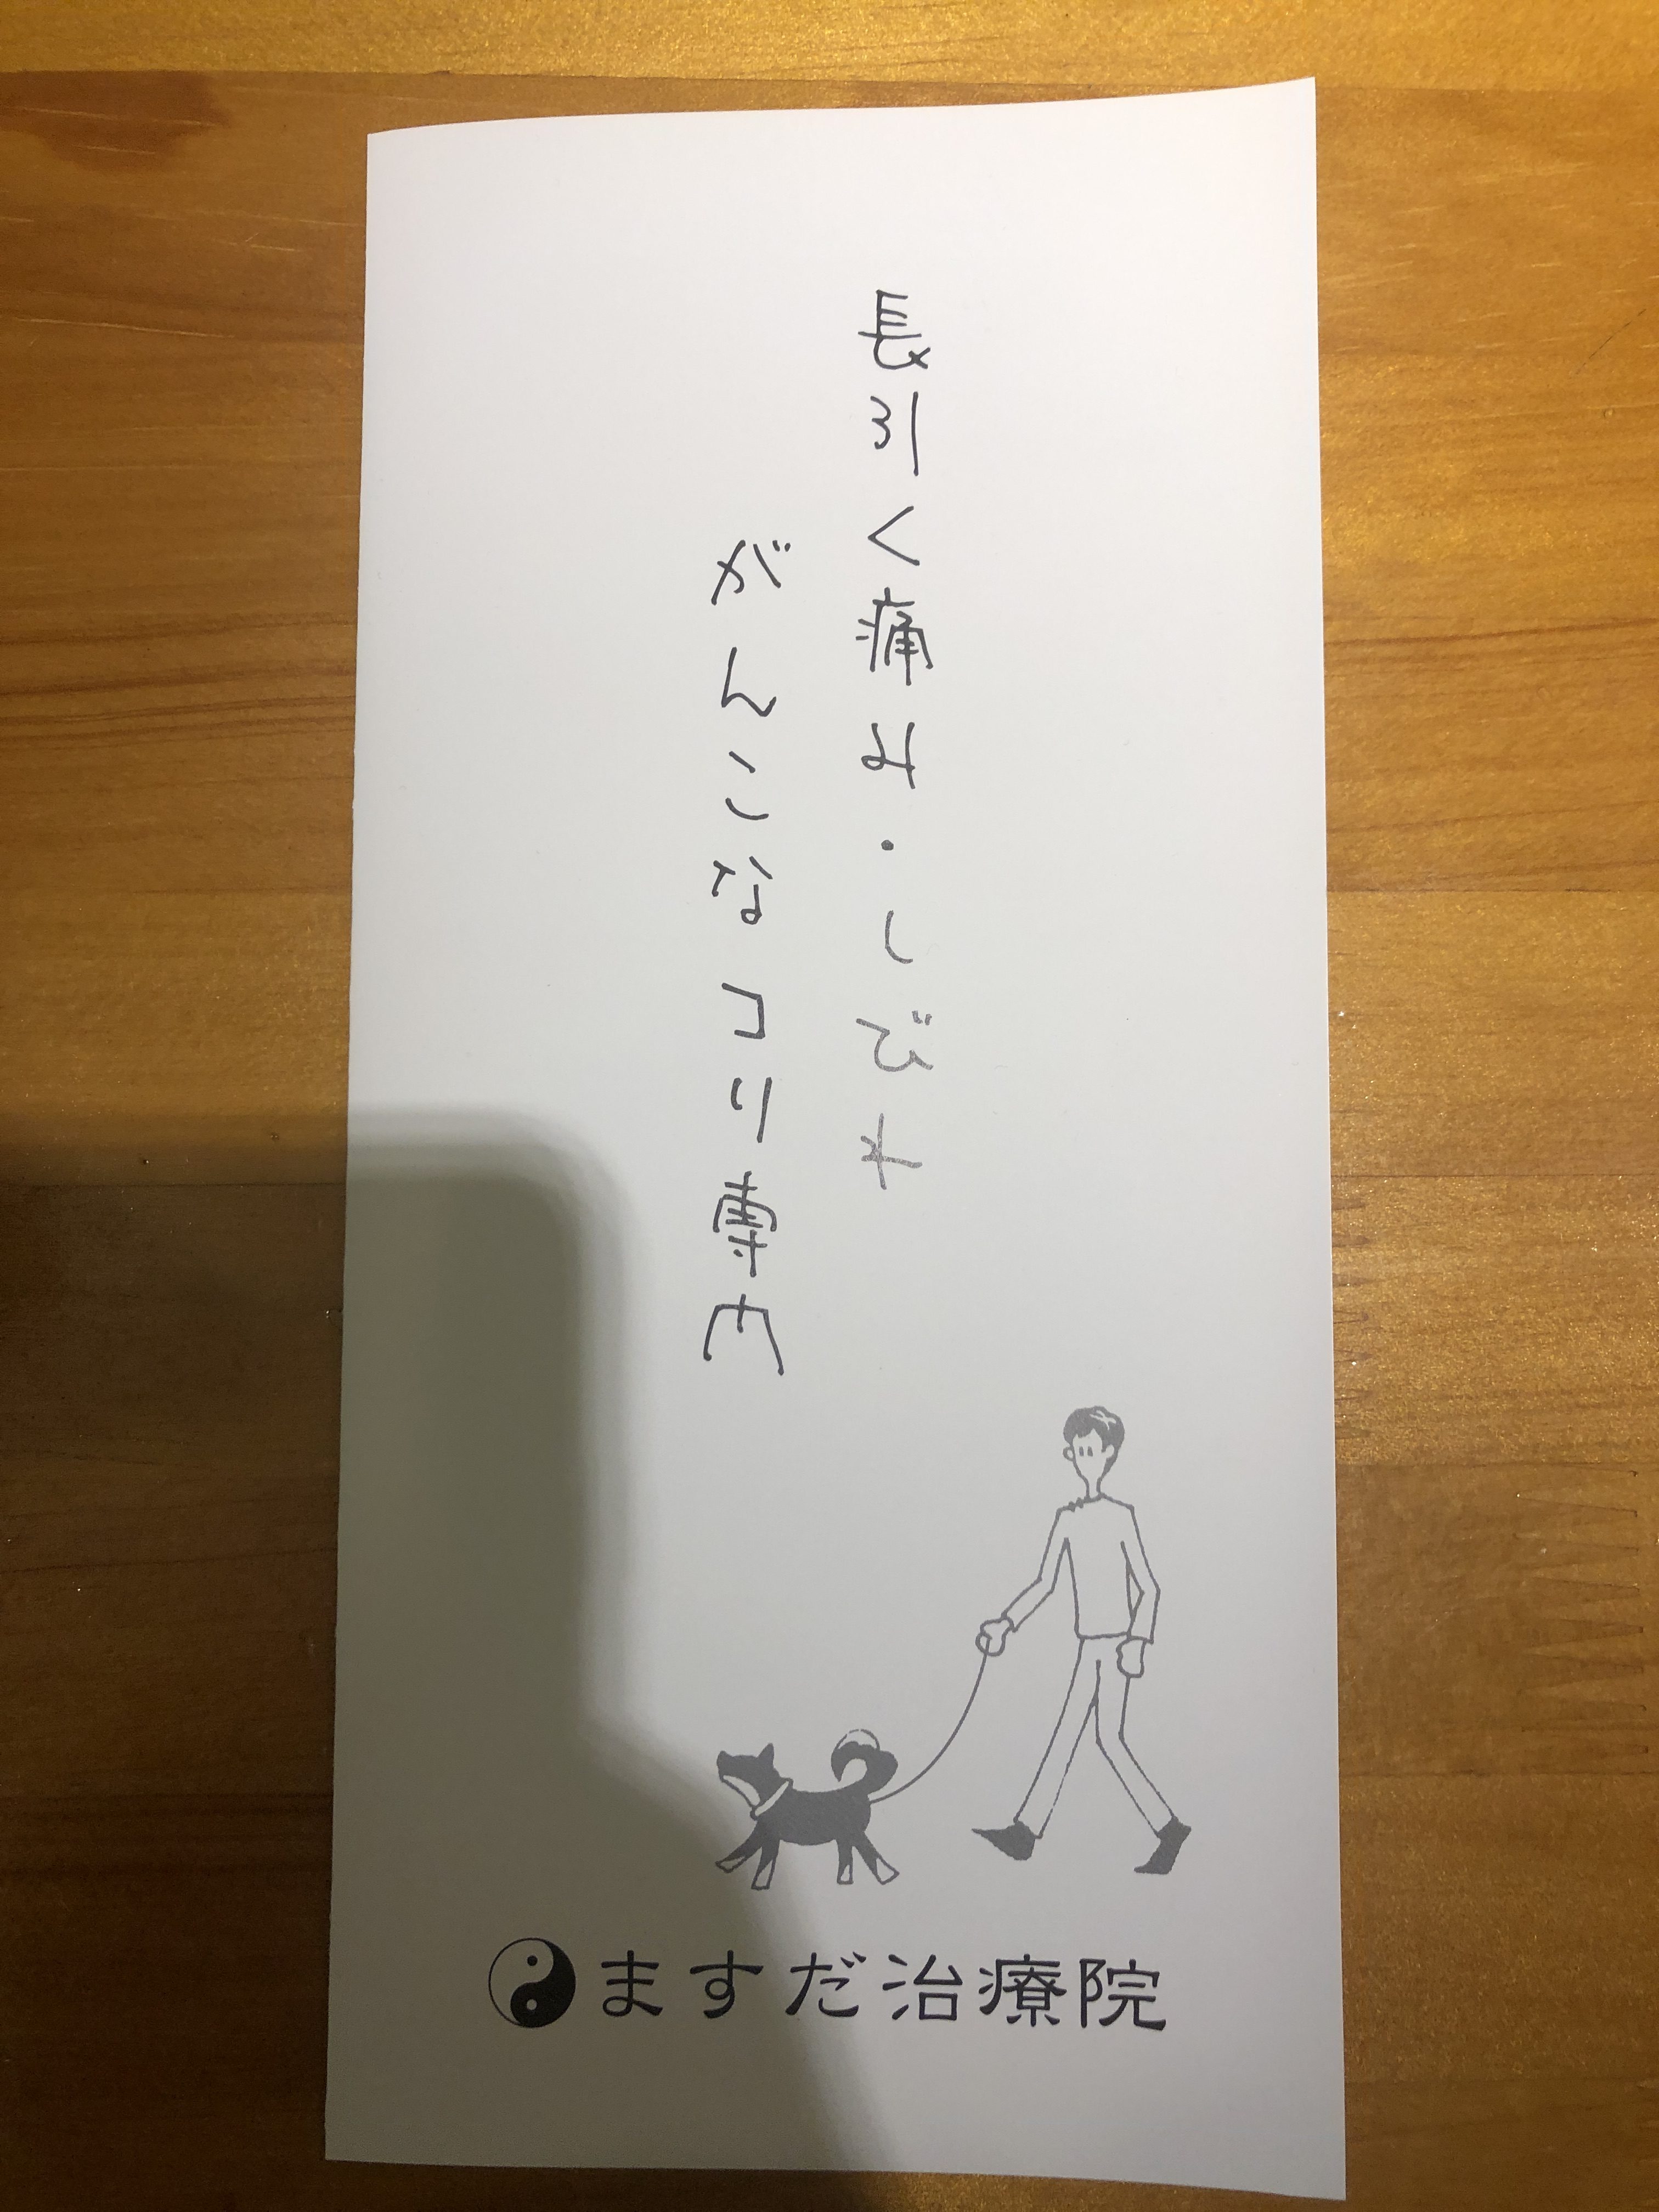 長引く痛み・しびれ
がんこなコリ専門
ますだ治療院